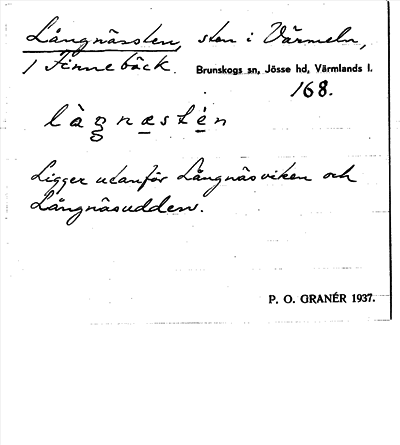 Långnässten, sten i Värmeln,
1 Finnebäck. Brunskogs sn, Jösse hd, Värmlands l.
168.
Ligger utanför Långnäsviken och
Långnäsudden.
P. O. GRANÉR 1937.